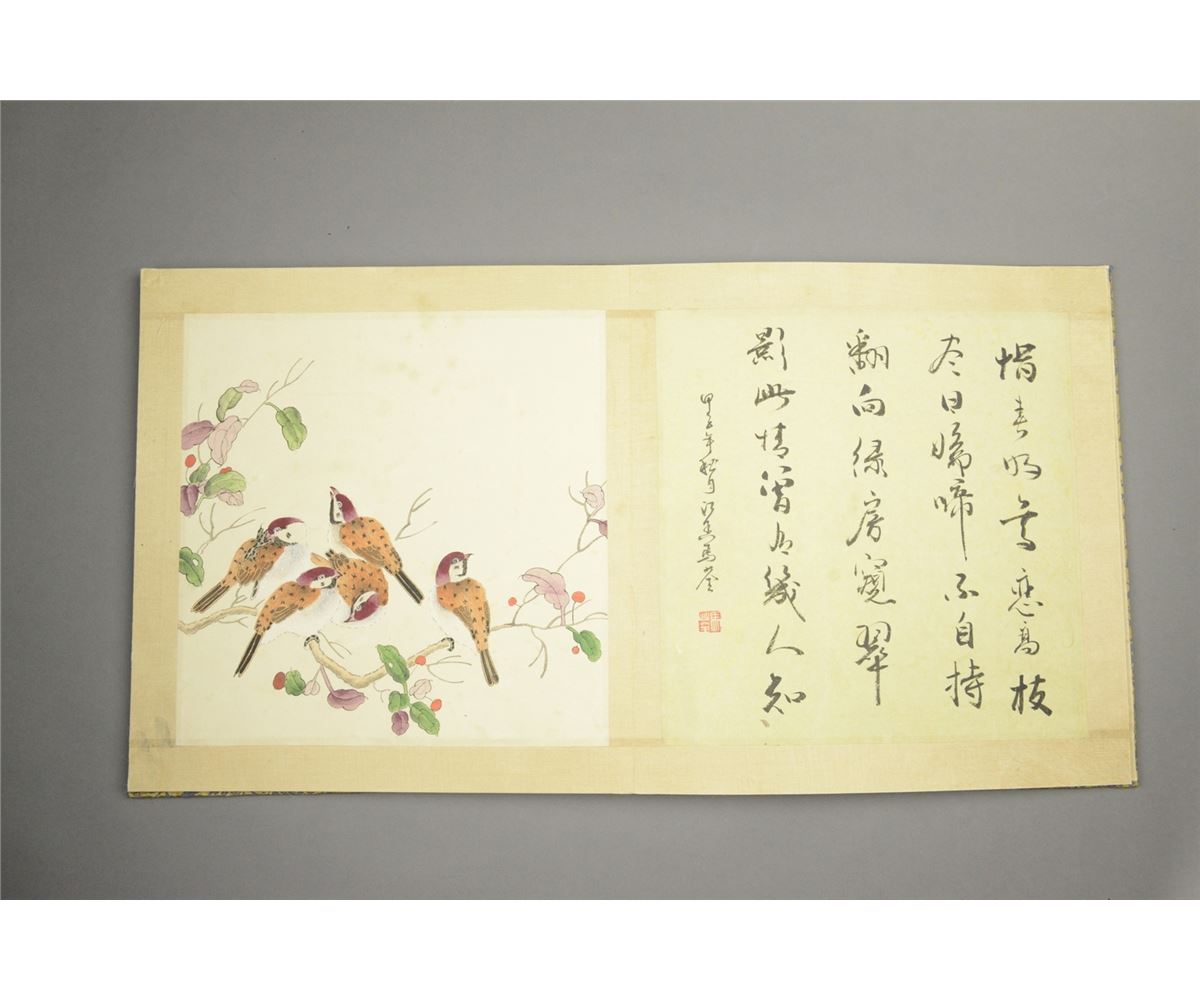 惜春恋高枝
尽日啼不自持
翻向绿房窥翠
影此情曾有幾人知
甲子年秋月